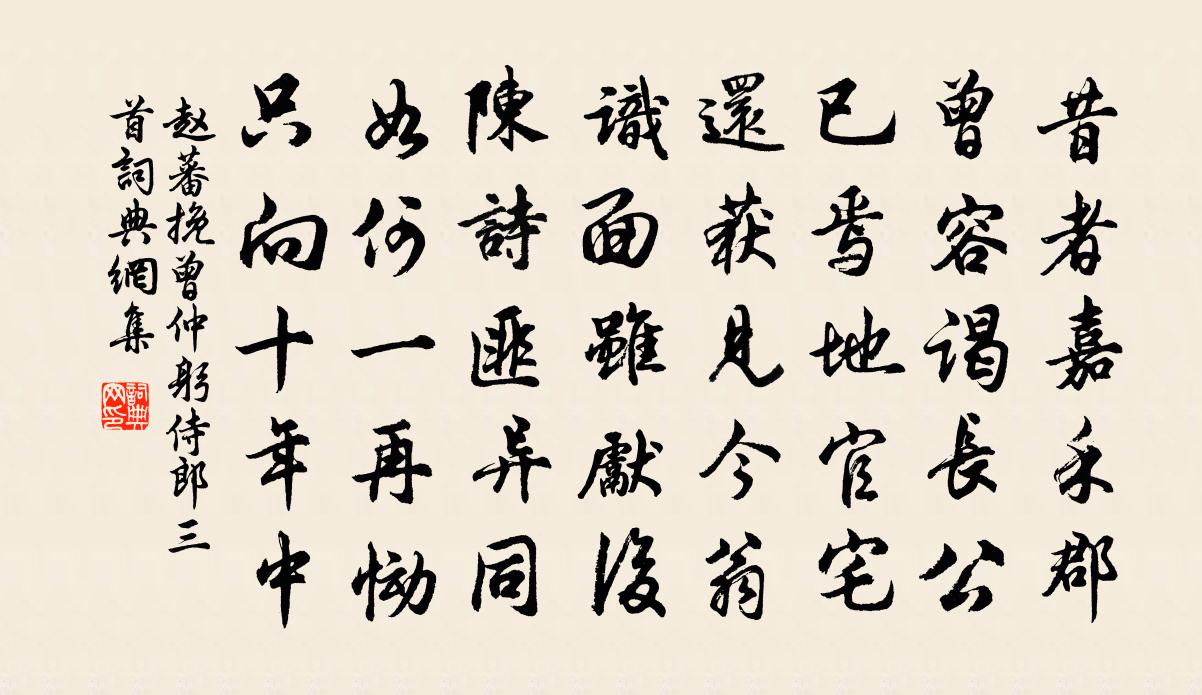 昔者嘉禾郡
曾容謁長公
已焉地官宅
還获見今翁
識面雖獻後
陳詩匪异同
如何一再慟
只向十年中
赵蕃挽曾仲躬侍郎三
首詞典網集
詞典
网印